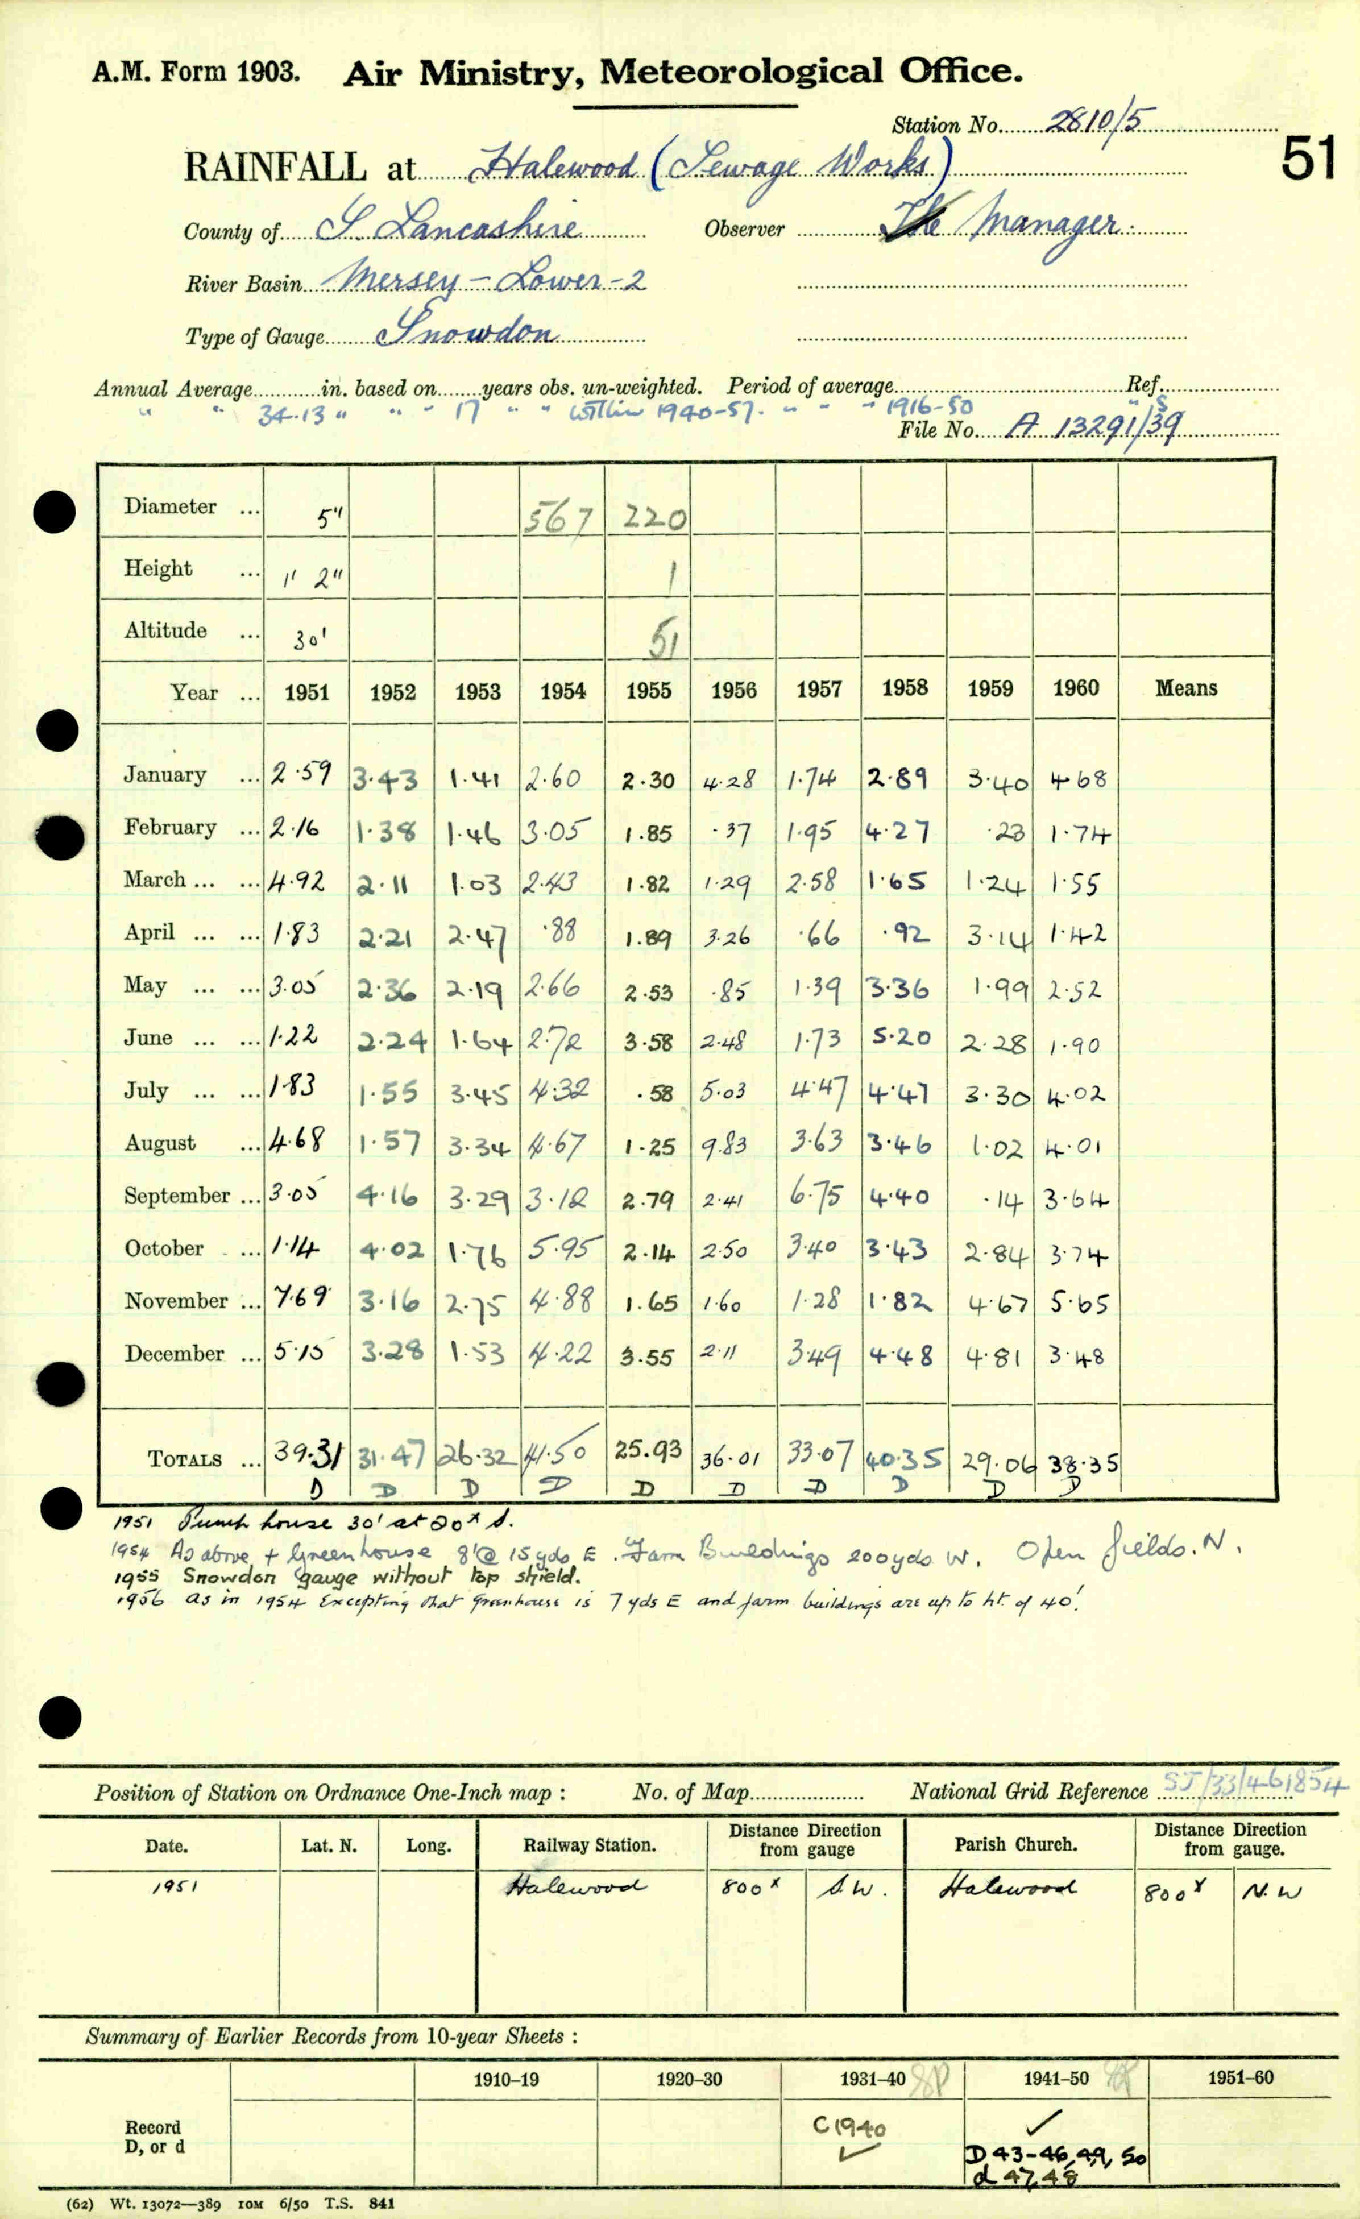 A.M. Form 1903. Air Ministry, Meteorological Office.
Station No. 2810/5
51
RAINFALL at Halewood (Sewage Works)
County of S. Lancashire Observer The Manager.
River Basin Mersey - Lower - 2
Type of Gauge Snowdon
Annual Average in. based on years obs. un-weighted. Period of average Ref.
" " 34.13 " " " 17 " " within 1940-57. " " " 1916-50 "
File No. A 13291/39
Diameter ... 5" 567 220
Height ... 1' 2" 1
Altitude ... 30' 51
Year ... 1951 1952 1953 1954 1955 1956 1957 1958 1959 1960 Means
January ... 2.59 3.43 1.41 2.60 2.30 4.28 1.74 2.89 3.40 4.68
February ... 2.16 1.38 1.46 3.05 1.85 .37 1.95 4.27 .23 1.74
March ... ... 4.92 2.11 1.03 2.43 1.82 1.29 2.58 1.65 1.24 1.55
April ... ... 1.83 2.21 2.47 .88 1.89 3.26 .66 .92 3.14 1.42
May ... ... 3.05 2.36 2.19 2.66 2.53 .85 1.39 3.36 1.99 2.52
June ... ... 1.22 2.24 1.64 2.72 3.58 2.48 1.73 5.20 2.28 1.90
July ... ... 1.83 1.55 3.45 4.32 .58 5.03 4.47 4.47 3.30 4.02
August ... 4.68 1.57 3.34 4.67 1.25 9.83 3.63 3.46 1.02 4.01
September ... 3.05 4.16 3.29 3.12 2.79 2.41 6.75 4.40 .14 3.64
October ... 1.14 4.02 1.76 5.95 2.14 2.50 3.40 3.43 2.84 3.74
November ... 7.69 3.16 2.75 4.88 1.65 1.60 1.28 1.82 4.67 5.65
December ... 5.15 3.28 1.53 4.22 3.55 2.11 3.49 4.48 4.81 3.48
TOTALS ... 39.31 31.47 26.32 41.50 25.93 36.01 33.07 40.35 29.06 38.35
D D D D D D D D D D
1951 Pump house 30' at 20x S.
1954 As above, + Greenhouse 8' @ 15 yds E. Farm Buildings 200yds W. Open fields. N.
1955 Snowdon gauge without top shield.
1956 As in 1954 Excepting that greenhouse is 7 yds E and farm buildings are up to ht. of 40'.
Position of Station on Ordnance One-Inch map : No. of Map National Grid Reference SJ/33/461854
Date. Lat. N. Long. Railway Station. Distance Direction from gauge Parish Church. Distance Direction from gauge.
1951 Halewood 800x S.W. Halewood 800x N.W
Summary of Earlier Records from 10-year Sheets :
1910-19 1920-30 1931-40 1941-50 1951-60
Record D, or d C1940 ✓ ✓
D 43-46, 49, 50
d 47, 48
(62) Wt. 13072—389 10M 6/50 T.S. 841